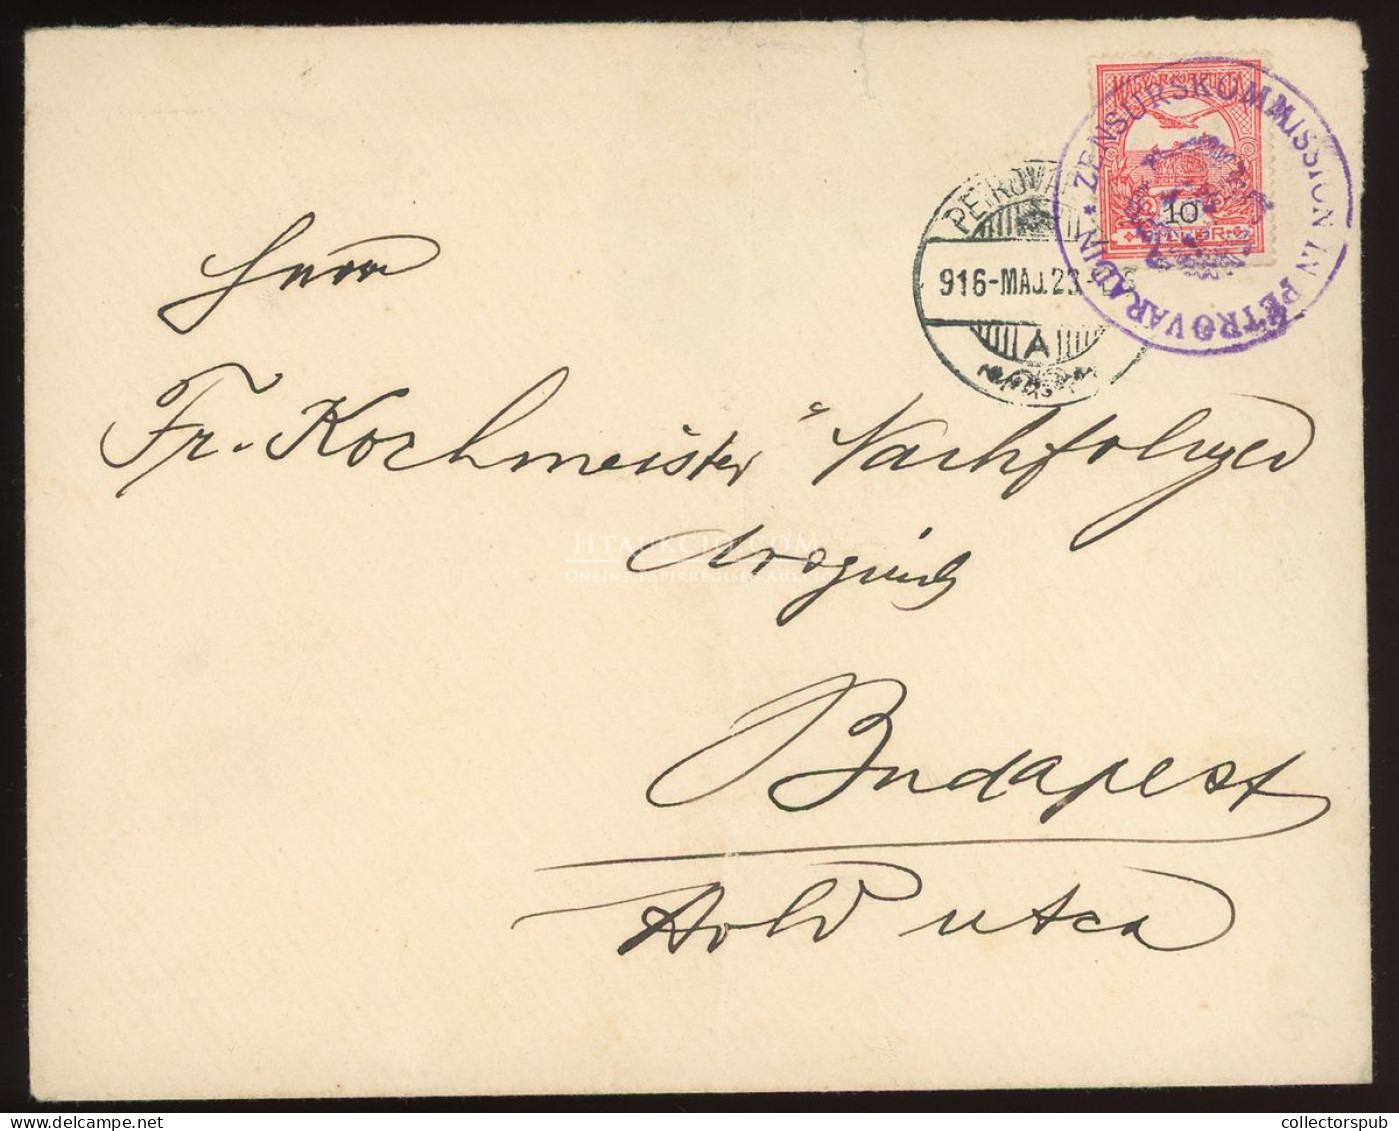 MAGYAR KIR. POSTA
10
FILLÉR
* ZENSURSKOMMISSION IN PETROVARADIN
PETROVÁ
916-MÁJ.23.
A
Herrn
Fr. Kochmeister's Nachfolger
HTAUKCIO.COM
ONLINE PAPÍRRÉGISÉG AUKCIÓ
Budapest
Hold utca
collectorspub